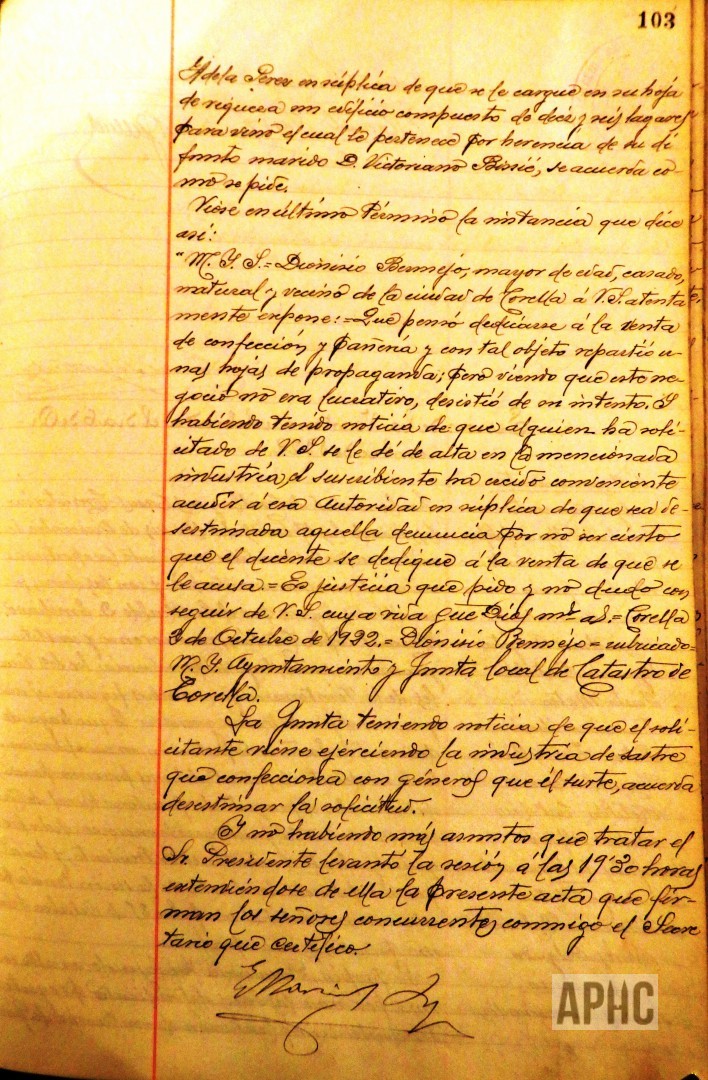 103
Adela Perez en súplica de que se le cargue en su hoja
de riqueza un edificio compuesto de diez y seis lagares
para vino el cual le pertenece por herencia de su di
funto marido D. Victoriano Bissié, se acuerda co-
mo se pide.
Viose en último término la instancia que dice
así:
"M. Y. S.= Dionisio Bermejo, mayor de edad, casado,
natural y vecino de la ciudad de Corella á V.S. atenta
mente expone:= Que pensó dedicarse á la venta
de confección y pañería y con tal objeto repartió u-
nas hojas de propaganda; pero viendo que este ne-
gocio no era lucrativo, desistió de su intento. Y
habiendo tenido noticia de que alguien ha soli-
citado de V. S. se le dé de alta en la mencionada
industria, el suscribiente ha creido conveniente
acudir á esa Autoridad en súplica de que sea de-
sestimada aquella denuncia por no ser cierto
que el dicente se dedique á la venta de que se
le acusa.= Es justicia que pido y no dudo con
seguir de V. S. cuya vida gue Dios ms. as.= Corella
3 de Octubre de 1922.= Dionisio Bermejo= rubricado=
M. Y. Ayuntamiento y Junta local de Catastro de
Corella.
La Junta teniendo noticia de que el soli-
citante viene ejerciendo la industria de sastre
que confecciona con géneros que él surte, acuerda
desestimar la solicitud.
Y no habiendo más asuntos que tratar el
Sr. Presidente levantó la sesión á las 19'30 horas
extendiéndose de ella la presente acta que fir-
man los señores concurrentes conmigo el Secre
tario que certifico.
APHC